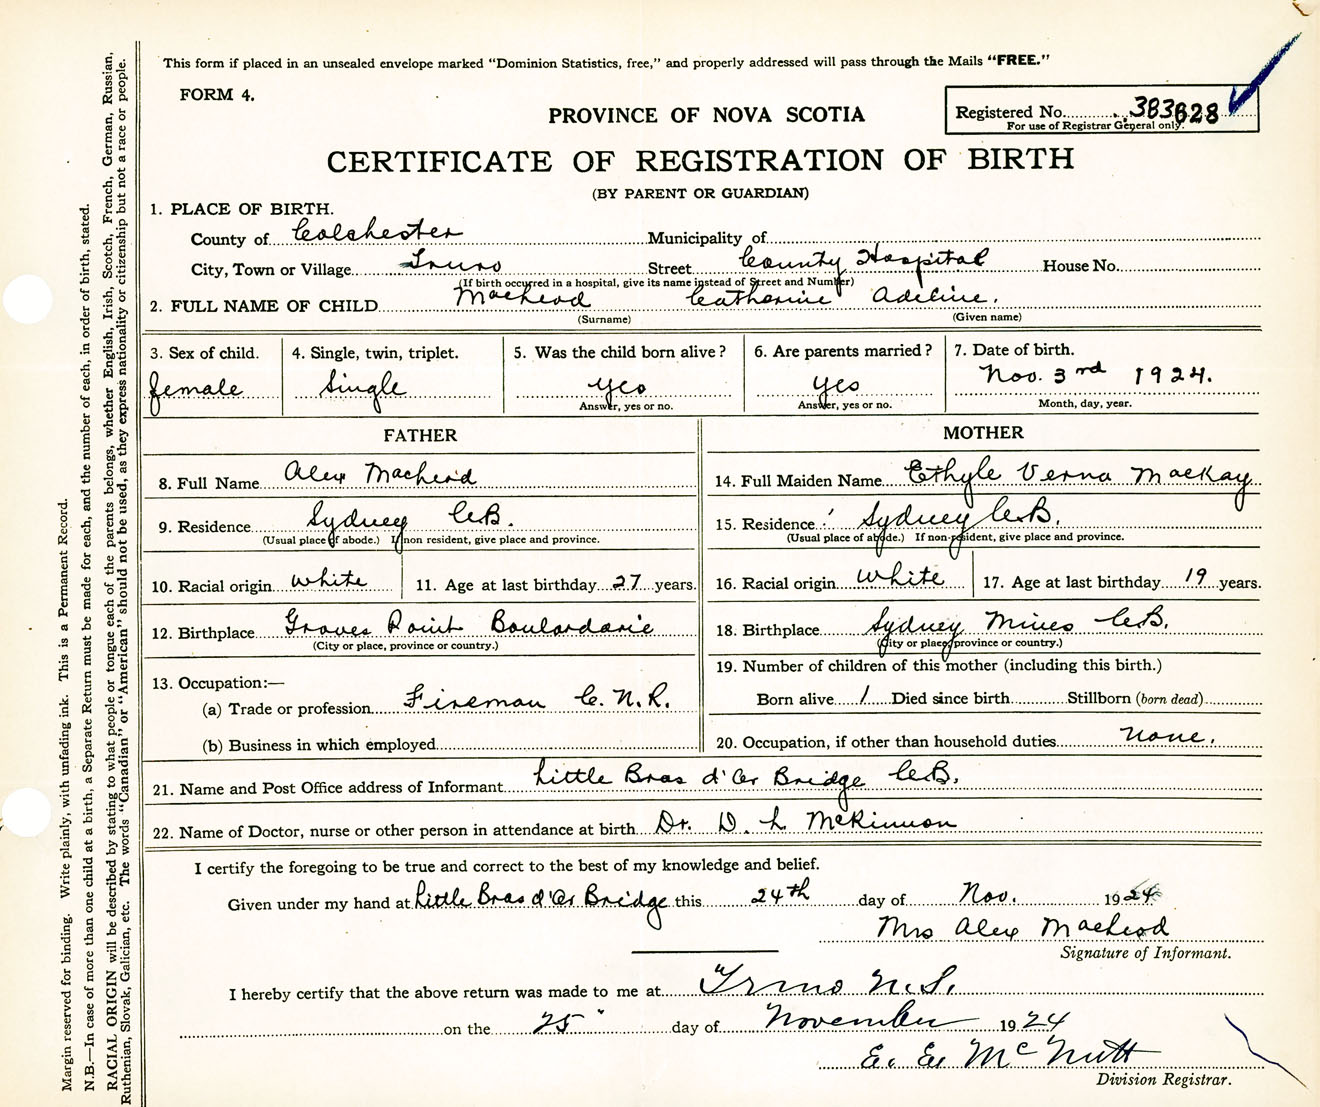 This form if placed in an unsealed envelope marked "Dominion Statistics, free," and properly addressed will pass through the Mails "FREE."
FORM 4.
PROVINCE OF NOVA SCOTIA
Registered No. 383628
For use of Registrar General only.
CERTIFICATE OF REGISTRATION OF BIRTH
(BY PARENT OR GUARDIAN)
1. PLACE OF BIRTH.
County of Colchester Municipality of
City, Town or Village Truro Street County Hospital House No.
(If birth occurred in a hospital, give its name instead of Street and Number)
2. FULL NAME OF CHILD MacLeod Catherine Adeline.
(Surname) (Given name)
3. Sex of child. 4. Single, twin, triplet. 5. Was the child born alive? 6. Are parents married? 7. Date of birth.
female Single yes yes Nov. 3rd 1924.
Answer, yes or no. Answer, yes or no. Month, day, year.
FATHER MOTHER
8. Full Name Alex MacLeod
14. Full Maiden Name Ethyle Verna MacKay
9. Residence Sydney C.B.
(Usual place of abode.) If non resident, give place and province.
15. Residence Sydney C.B.
(Usual place of abode.) If non-resident, give place and province.
10. Racial origin white 11. Age at last birthday 27 years.
16. Racial origin white 17. Age at last birthday 19 years.
12. Birthplace Groves Point Boulardarie
(City or place, province or country.)
18. Birthplace Sydney Mines C.B.
(City or place, province or country.)
13. Occupation:—
(a) Trade or profession Fireman C.N.R.
(b) Business in which employed
19. Number of children of this mother (including this birth.)
Born alive 1 Died since birth Stillborn (born dead)
20. Occupation, if other than household duties None.
21. Name and Post Office address of Informant Little Bras d'Or Bridge C.B.
22. Name of Doctor, nurse or other person in attendance at birth Dr. D. L McKinnon
I certify the foregoing to be true and correct to the best of my knowledge and belief.
Given under my hand at Little Bras d'Or Bridge this 24th day of Nov. 1924
Mrs Alex MacLeod
Signature of Informant.
I hereby certify that the above return was made to me at Truro N.S.
on the 25" day of November 1924
E. E. McNutt
Division Registrar.
Margin reserved for binding. Write plainly, with unfading ink. This is a Permanent Record.
N.B.—In case of more than one child at a birth, a Separate Return must be made for each, and the number of each, in order of birth, stated.
RACIAL ORIGIN will be described by stating to what people or tongue each of the parents belongs, whether English, Irish, Scotch, French, German, Russian,
Ruthenian, Slovak, Galician, etc. The words "Canadian" or "American" should not be used, as they express nationality or citizenship but not a race or people.